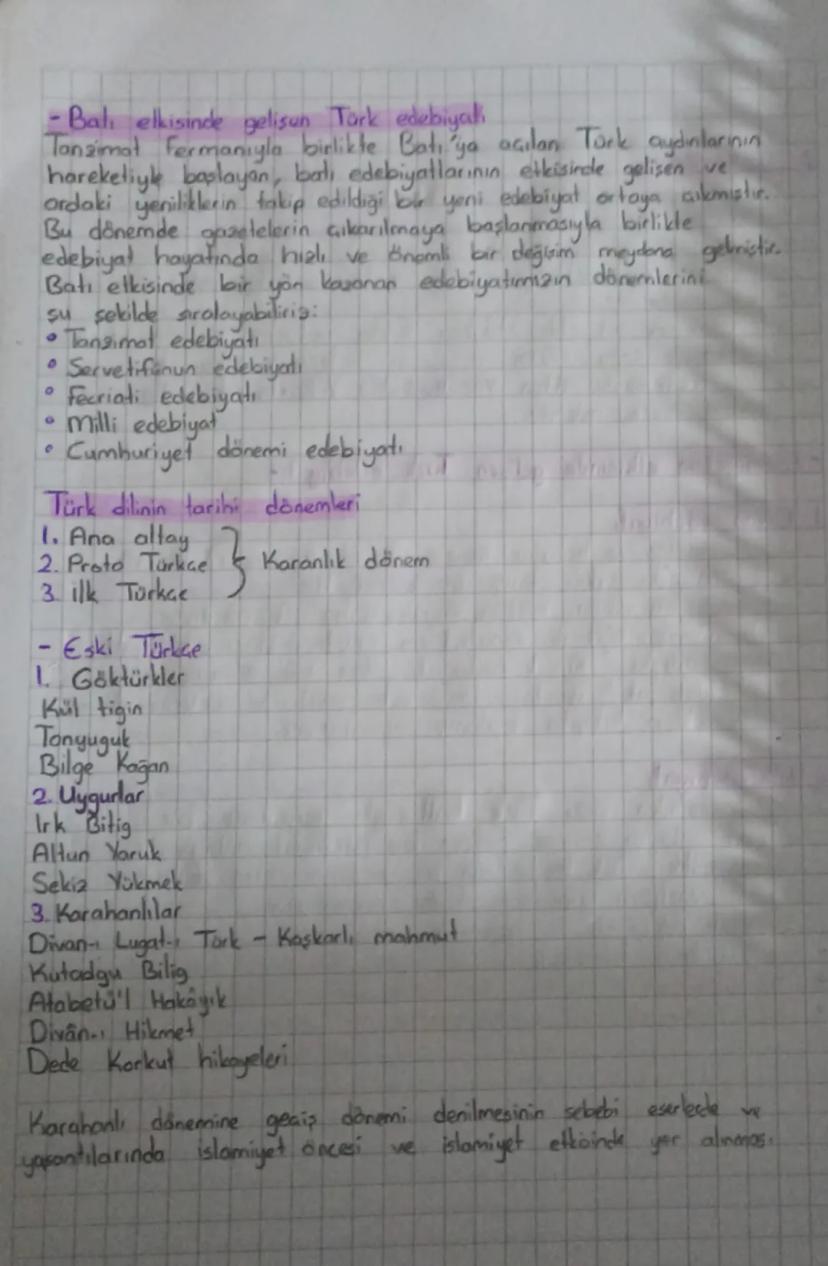 - Batı etkisinde gelişen Türk edebiyatı
Tanzimat Fermanıyla birlikte Batı'ya açılan Türk aydınlarının
hareketiyle başlayan, batı edebiyatlarının etkisinde gelişen ve
ordaki yeniliklerin takip edildiği bir yeni edebiyat ortaya çıkmıştır.
Bu dönemde gazetelerin çıkarılmaya başlanmasıyla birlikte
edebiyat hayatında hızlı ve önemli bir değişim meydana gelmiştir.
Batı etkisinde bir yön kazanan edebiyatımızın dönemlerini
şu şekilde sıralayabiliriz:
• Tanzimat edebiyatı
• Servetifünun edebiyatı
• Fecriati edebiyatı
• Milli edebiyat
• Cumhuriyet dönemi edebiyatı
Türk dilinin tarihi dönemleri
1. Ana altay
2. Proto Türkçe } Karanlık dönem
3. ilk Türkçe
- Eski Türkçe
1. Göktürkler
Kül tigin
Tonyuguk
Bilge Kağan
2. Uygurlar
Irk Bitig
Altun Yaruk
Sekiz Yükmek
3. Karahanlılar
Divan-ı Lugat-ı Türk - Kaşkarlı mahmut
Kutadgu Bilig
Atabetü'l Hakâyık
Divân-ı Hikmet
Dede Korkut hikayeleri
Karahanlı dönemine geçiş dönemi denilmesinin sebebi eserlede ve
yaşantılarında islamiyet öncesi ve islamiyet etkisinde yer alınması.